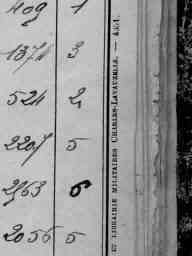 409 1
1374 3
524 2
2207 5
2963 5
2056 5
ET LIBRAIRIE MILITAIRES CHARLES-LAVAUZELLE. —